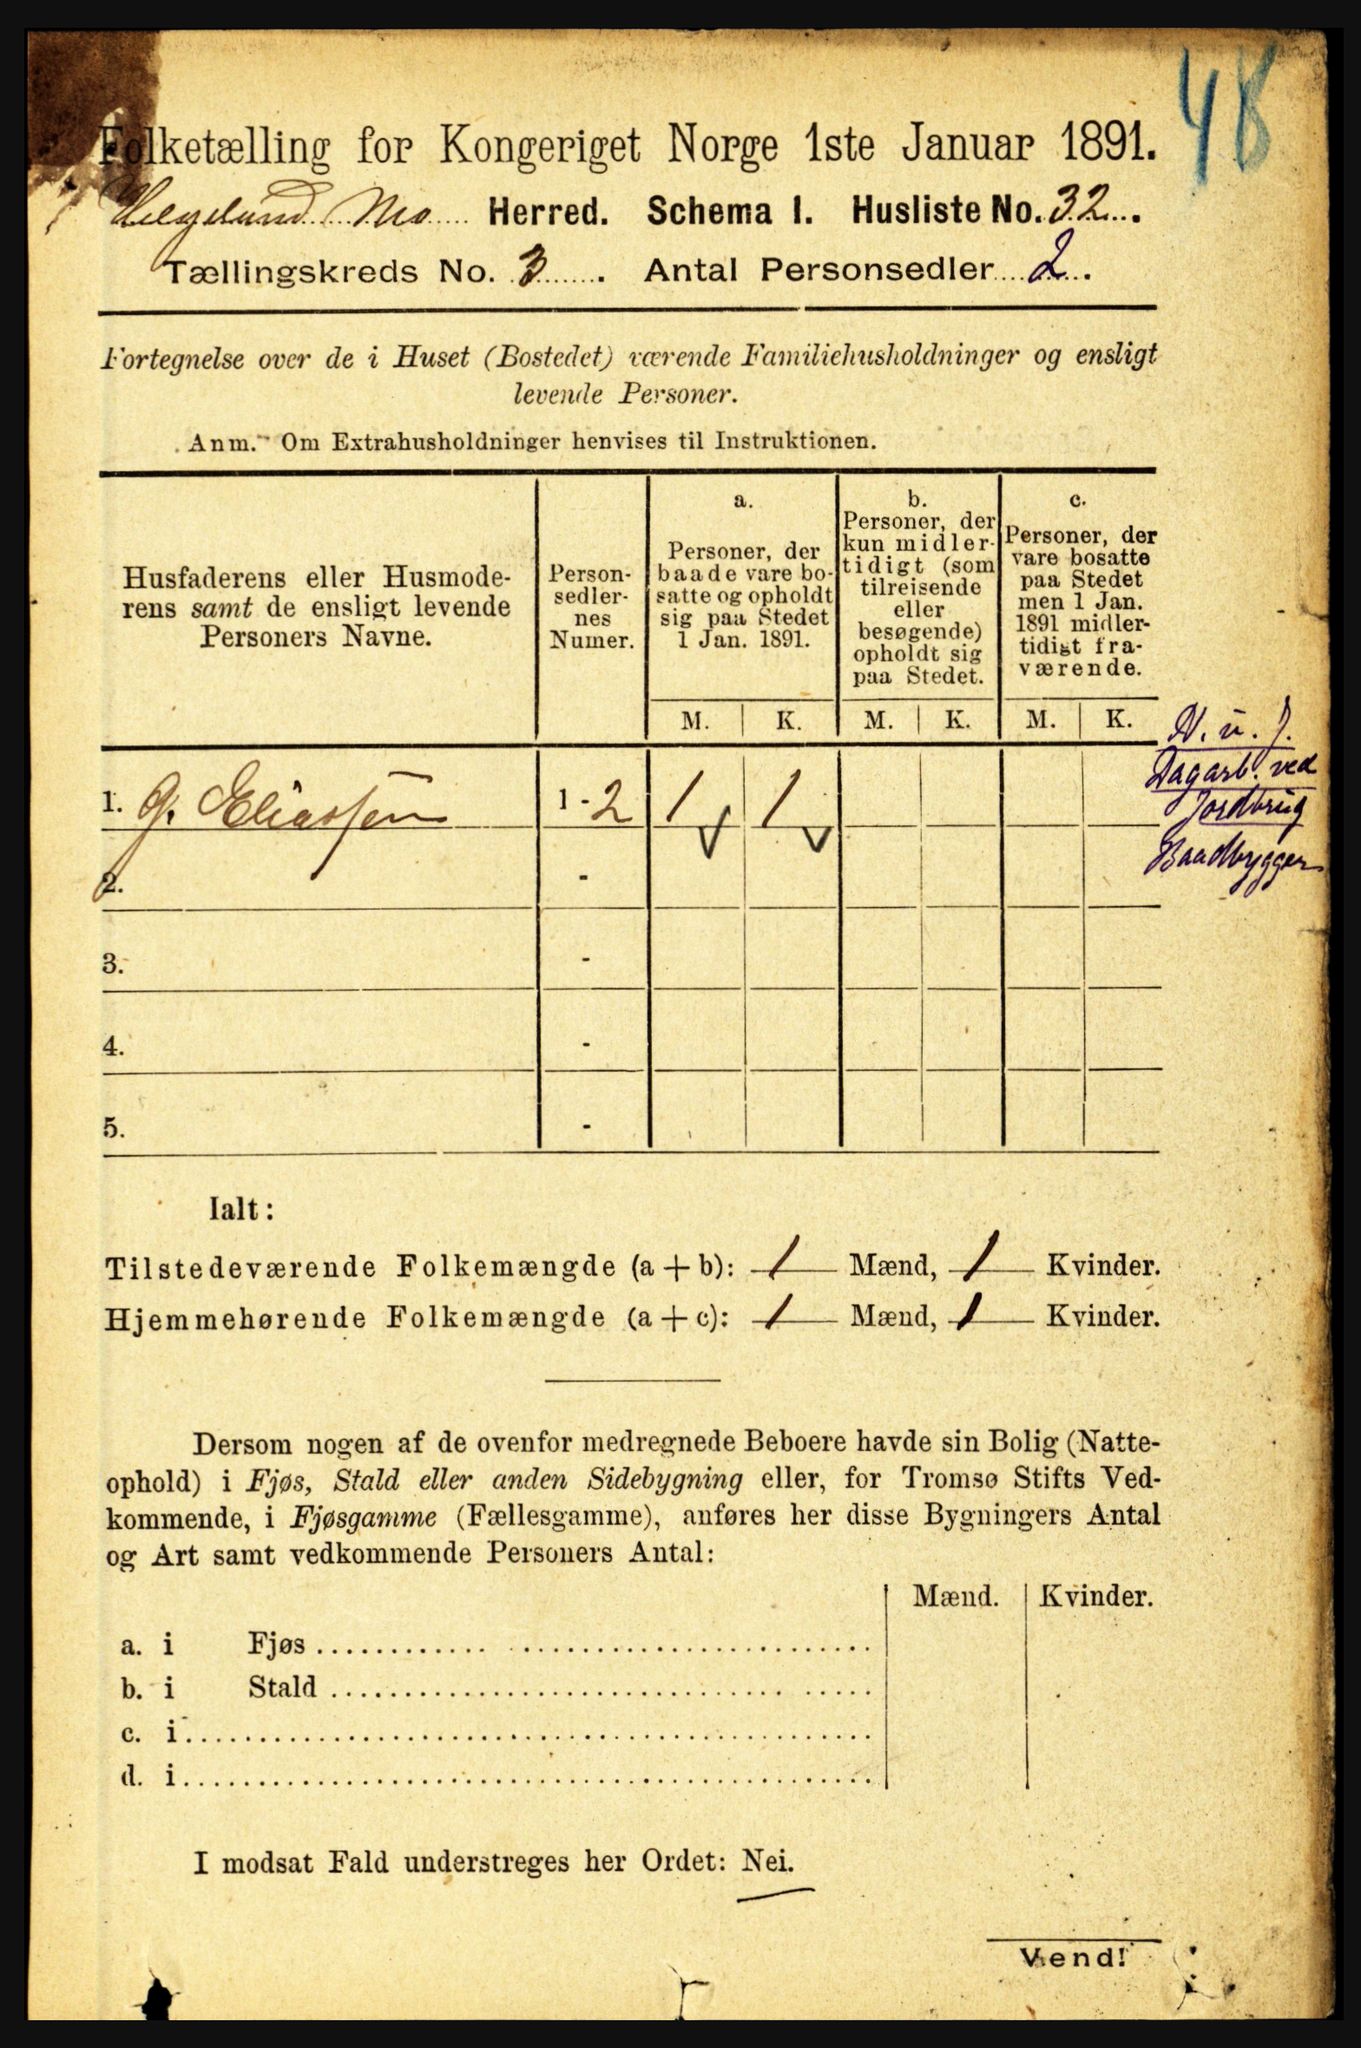 48
Folketælling for Kongeriget Norge 1ste Januar 1891.
Helgeland Mo Herred. Schema I. Husliste No. 32.
Tællingskreds No. 3. Antal Personsedler 2.
Fortegnelse over de i Huset (Bostedet) værende Familiehusholdninger og ensligt
levende Personer.
Anm. Om Extrahusholdninger henvises til Instruktionen.
Husfaderens eller Husmode-
rens samt de ensligt levende
Personers Navne.
Person-
sedler-
nes
Numer.
a.
Personer, der
baade vare bo-
satte og opholdt
sig paa Stedet
1 Jan. 1891.
b.
Personer, der
kun midler-
tidigt (som
tilreisende
eller
besøgende)
opholdt sig
paa Stedet.
c.
Personer, der
vare bosatte
paa Stedet
men 1 Jan.
1891 midler-
tidigt fra-
værende.
M. K. M. K. M. K.
1. G. Eliassen 1 - 2 1 1
2. -
3. -
4. -
5. -
Dagarb. ved
Jordbrug
Baadbygger
Ialt:
Tilstedeværende Folkemængde (a + b): 1 Mænd, 1 Kvinder.
Hjemmehørende Folkemængde (a + c): 1 Mænd, 1 Kvinder.
Dersom nogen af de ovenfor medregnede Beboere havde sin Bolig (Natte-
ophold) i Fjøs, Stald eller anden Sidebygning eller, for Tromsø Stifts Ved-
kommende, i Fjøsgamme (Fællesgamme), anføres her disse Bygningers Antal
og Art samt vedkommende Personers Antal:
Mænd. Kvinder.
a. i Fjøs
b. i Stald
c. i
d. i
I modsat Fald understreges her Ordet: Nei.
Vend!